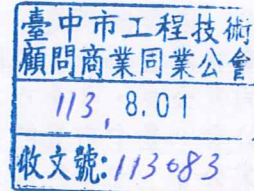 臺中市工程技術
顧問商業同業公會
113. 8.01
收文號:113083